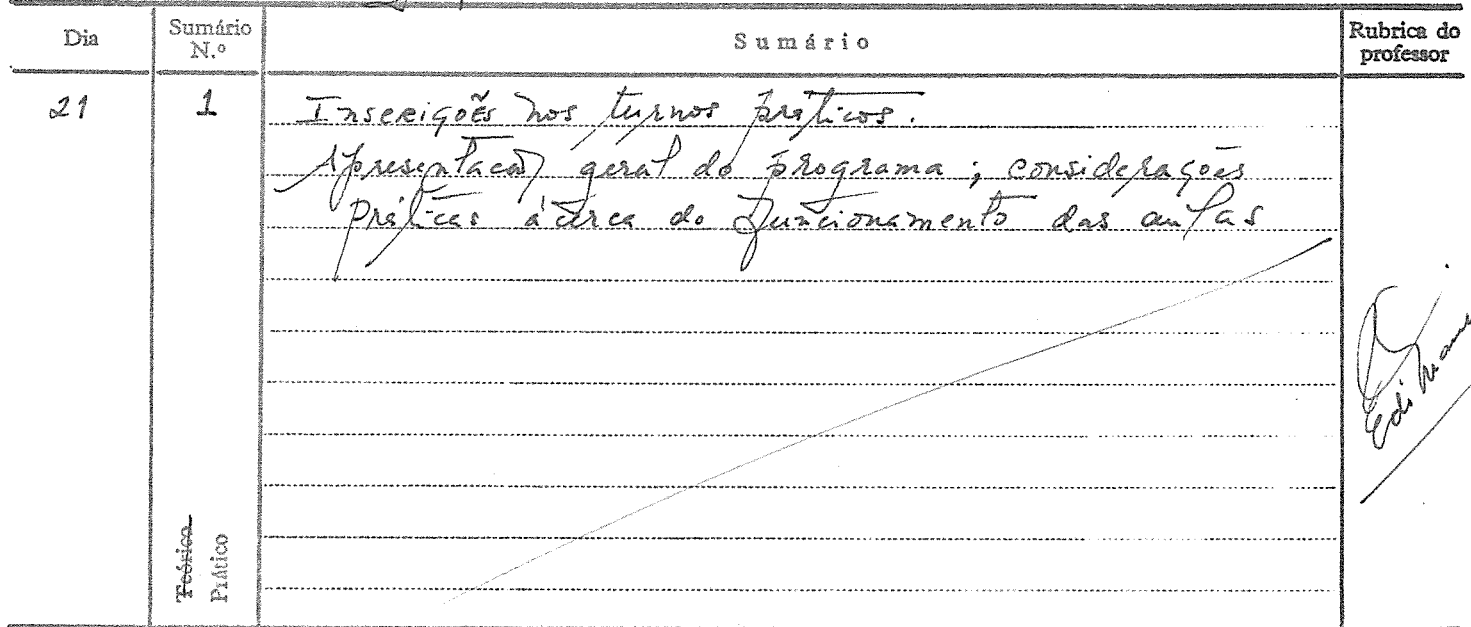 Dia
Sumário N.º
Sumário
Rubrica do professor
21
1
Inscrições nos turnos práticos.
Apresentação geral do programa; considerações
práticas àcerca do funcionamento das aulas
Teórico
Prático